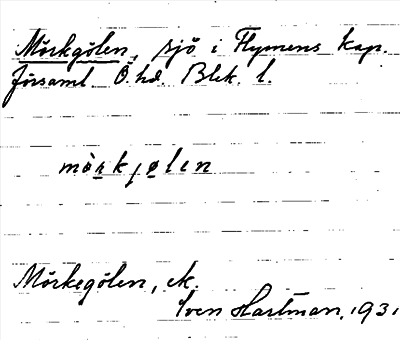 Mörkgölen, sjö i Flymens kap.
församl. Ö. hd. Blek. l.
mö̀rkjølen
Mörkegölen, ek.
Sven Hartman, 1931